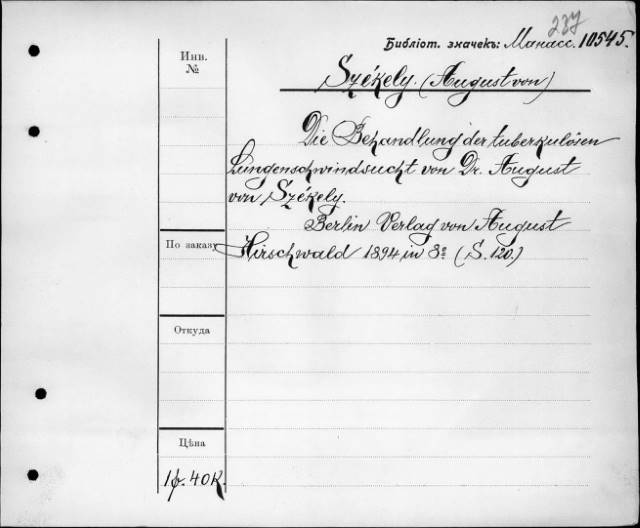 237
Библіот. значекъ: Манасс. 10545.
Инв.
№
Székely. (August von)
Die Behandlung der tuberkulösen
Lungenschwindsucht von Dr. August
von Székely.
Berlin Verlag von August
По заказу
Hirschwald 1894 in 8º (S. 120.)
Откуда
Цѣна
1 р. 40 к.